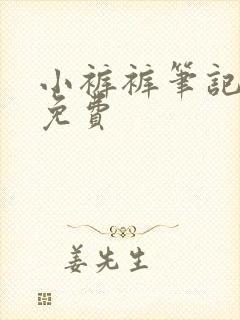 小裤裤筆記
免費
姜先生